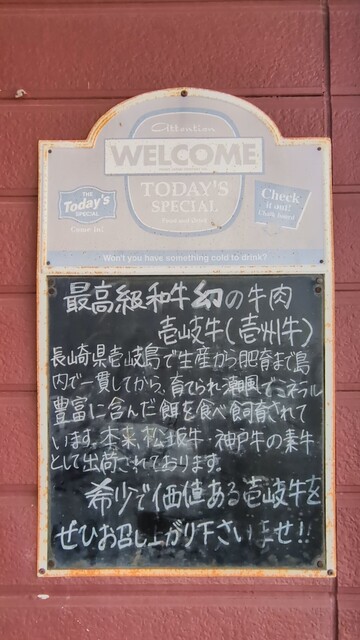 Attention
WELCOME
TODAY'S
SPECIAL
THE
Today's
SPECIAL
Come in!
Check
it out!
Chalk board
Won't you have something cold to drink?
最高級和牛幻の牛肉
壱岐牛(壱州牛)
長崎県壱岐島で生産から肥育まで島
内で一貫してから、育てられ潮風でミネラル
豊富に含んだ餌を食べ飼育されて
います。本来、松坂牛・神戸牛の素牛
として出荷されております。
希少で価値ある壱岐牛を
ぜひお召し上がり下さいませ!!